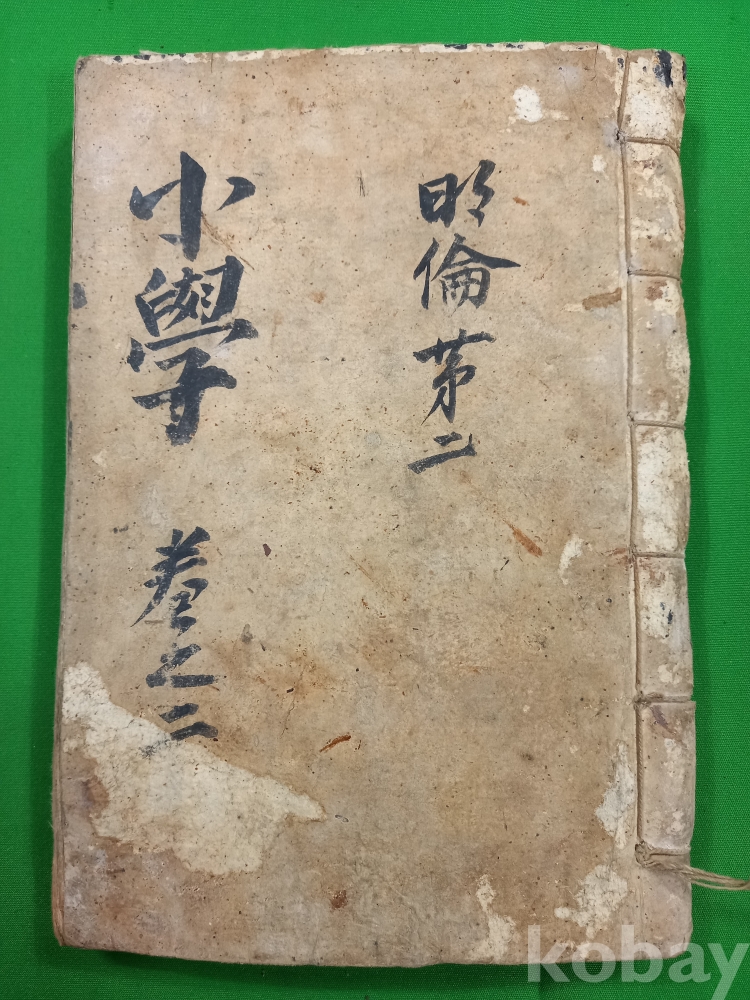 明倫第二
小學 卷之二
kobay